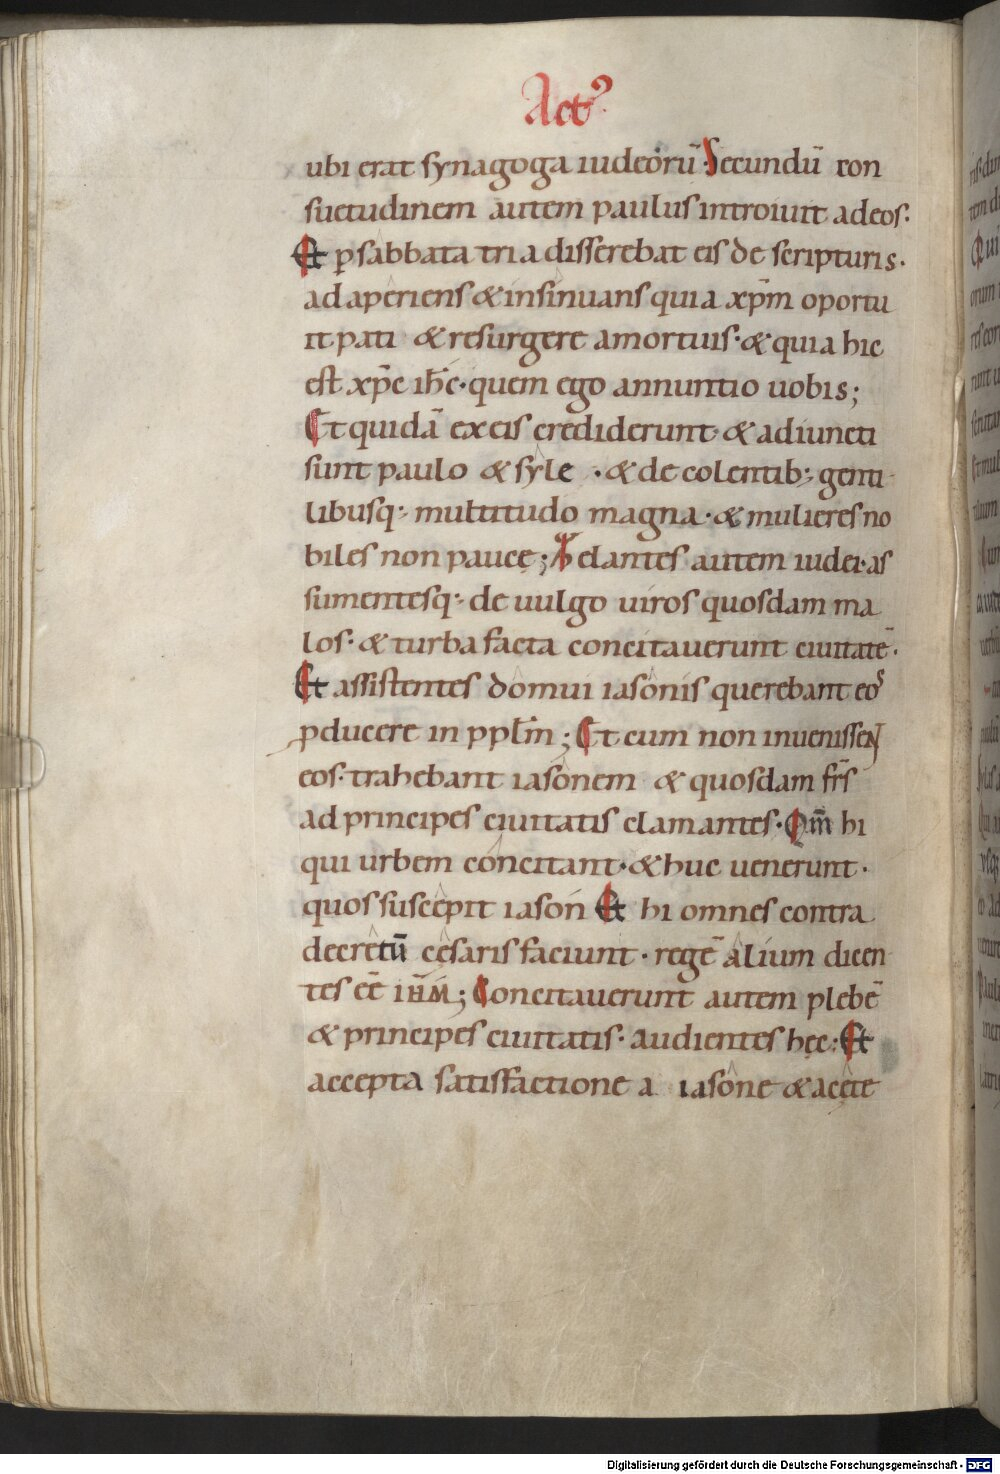 Actꝰ
ubi erat synagoga iudeorū. Secundū con
suetudinem autem paulus introiuit ad eos.
Et ꝑ sabbata tria disserebat eis de scripturis.
adaperiens & insinuans quia xp̄m oportu
it pati & resurgere amortuis. & quia hic
est xp̄c ih̄c. quem ego annuntio uobis;
Et quidā ex eis crediderunt & adiuncti
sunt paulo & syle . & de colentib; genti
libusq; multitudo magna. & mulieres no
biles non paucę; Zelantes autem iudei. as
sumentesq; de uulgo uiros quosdam ma
los. & turba facta concitauerunt ciuitatē.
Et assistentes domui iasonis querebant eos
ꝓducere in pplm̄; Et cum non inuenissent
eos. trahebant iasonem & quosdam frs̄
ad principes ciuitatis clamantes. Qm̄ hi
qui urbem concitant. & huc uenerunt.
quos suscepit iason Et hi omnes contra
decretū cęsaris faciunt. regē alium dicen
tes eē ih̄m; Concitauerunt autem plebē
& principes ciuitatis. audientes hęc. Et
accepta satisfactione a iasone & a cęte
Digitalisierung gefördert durch die Deutsche Forschungsgemeinschaft - DFG